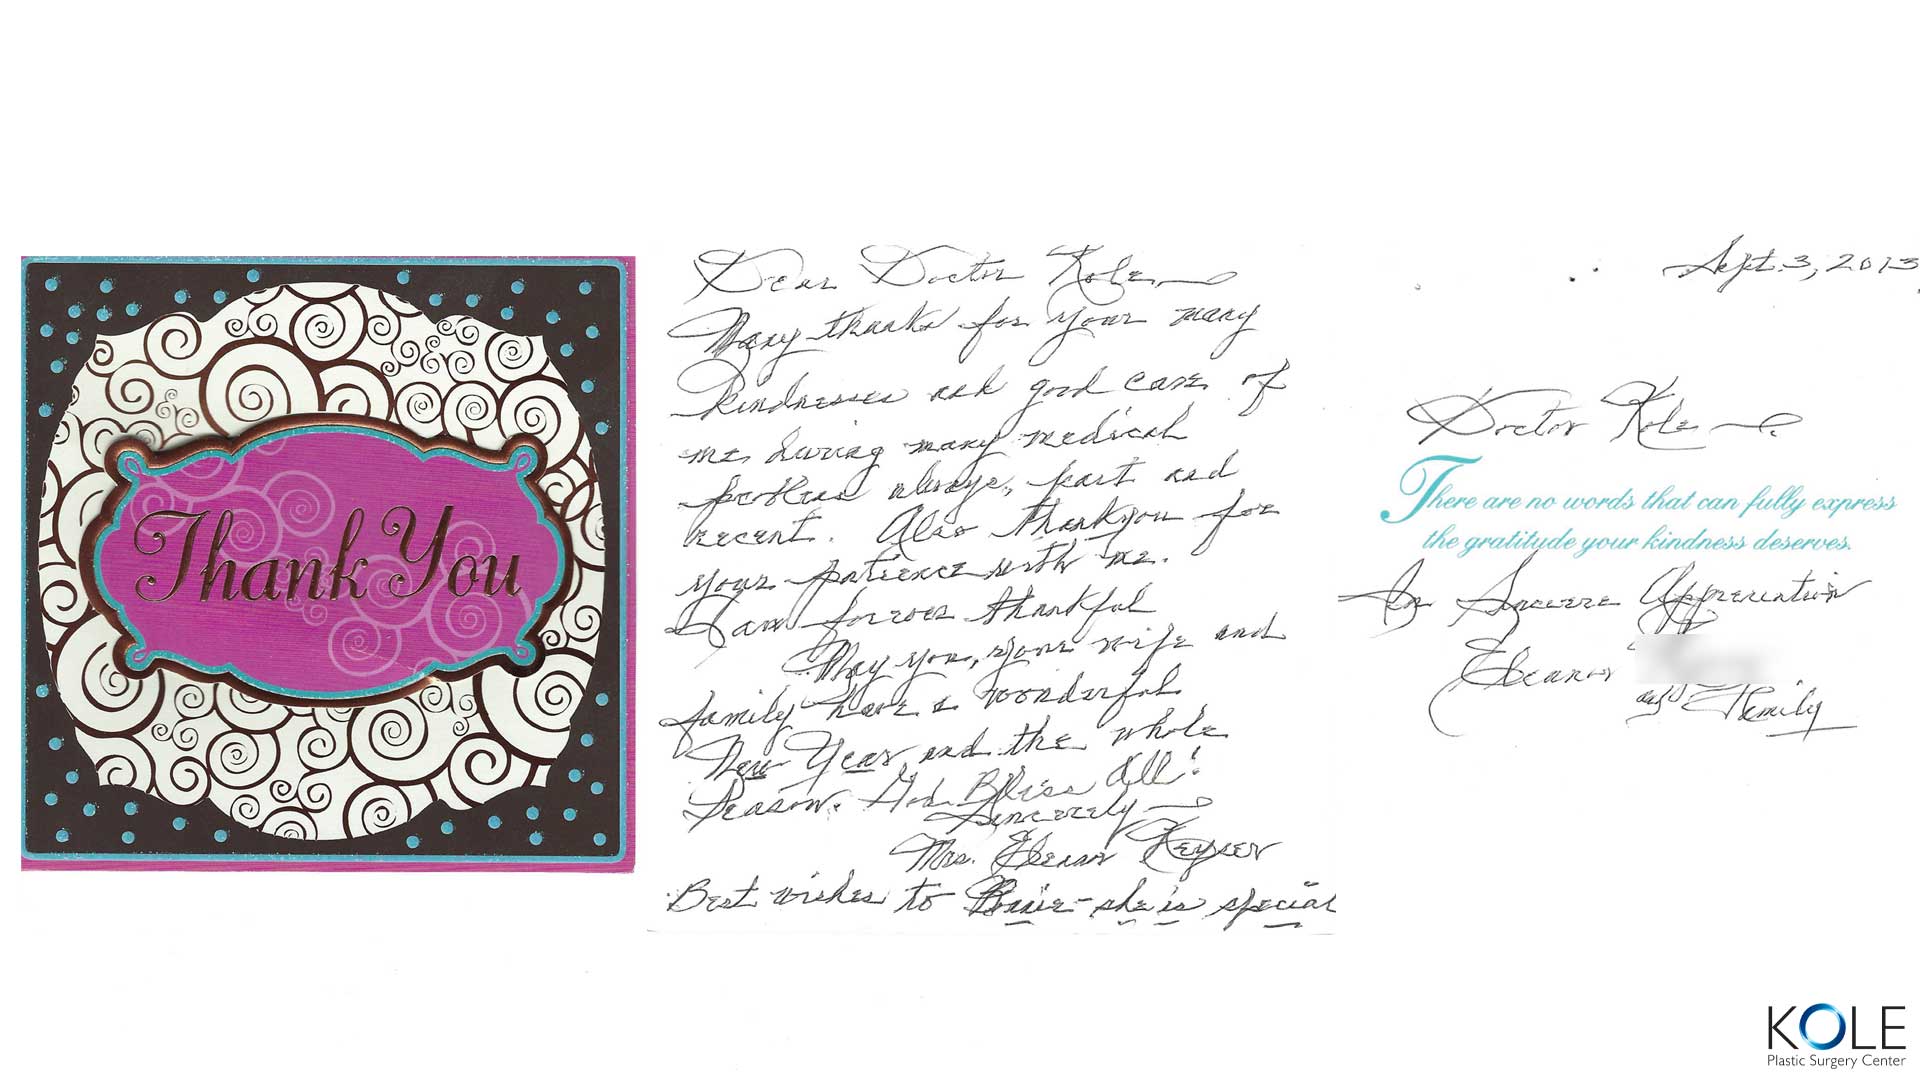 Thank You
Dear Doctor Kole
Many thanks for your many
kindnesses and good care of
me during many medical
problems always, past and
recent. Also thankyou for
your patience with me.
I am forever thankful
May you, your wife and
family have a wonderful
New Year, and the whole
Season. God Bless All!
Sincerely
Mrs. Eleanor Keyser
Best wishes to - she is special
Sept. 3, 2013
Doctor Kole
There are no words that can fully express
the gratitude your kindness deserves.
In Sincere Appreciation
Eleanor
and Family
KOLE
Plastic Surgery Center